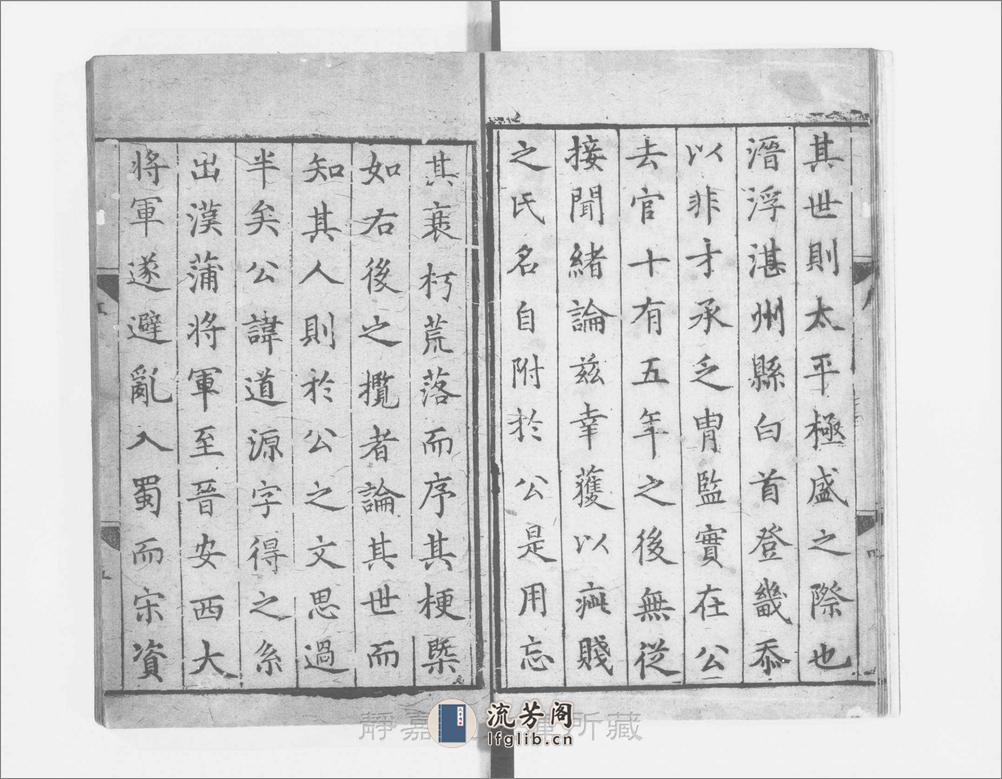 其世則太平極盛之際也
濳浮湛州縣白首登畿忝
以非才承乏胄監實在公
去官十有五年之後無從
接聞緒論兹幸獲以疵賤
之氏名自附於公是用忘
其衰朽荒落而序其梗槩
如右後之攬者論其世而
知其人則於公之文思過
半矣公諱道源字得之系
出漢蒲将軍至晉安西大
将軍遂避亂入蜀而宋資
流芳阁
lfglib.cn
靜嘉
所藏